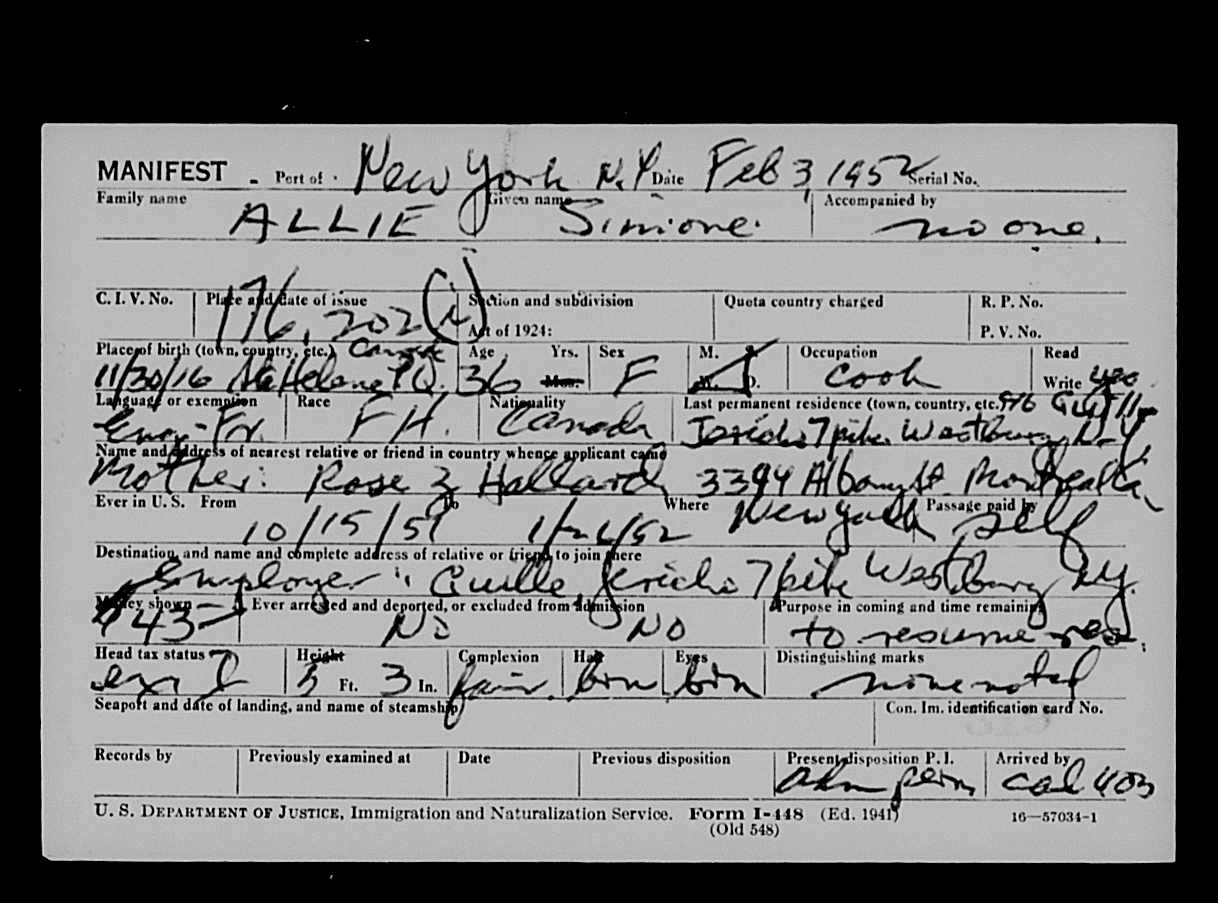 MANIFEST - Port of New York N.Y Date Feb 3, 1952 Serial No.
Family name Given name Accompanied by
ALLIE Simone. no one.
C. I. V. No. Place and date of issue Section and subdivision Quota country charged R. P. No.
176.202 (i) Act of 1924: P. V. No.
Place of birth (town, country, etc.) Canada Age Yrs. Sex M. S. Occupation Read
11/30/16 Ste Helene P.Q. 36 Mos. F W. D. Cook Write yes
Language or exemption Race Nationality Last permanent residence (town, country, etc.)
Eng-Fr. FH. Canada Jericho Tpike Westbury N.Y.
Name and address of nearest relative or friend in country whence applicant came
Mother: Rose 3394 Albany St. Montreal Ca
Ever in U. S. From To Where Passage paid by
10/15/51 1/26/52 New York self
Destination, and name and complete address of relative or friend to join there
Employer: Jericho Tpike Westbury N.Y.
Money shown Ever arrested and deported, or excluded from admission Purpose in coming and time remaining
$43- No No to resume res.
Head tax status Height Complexion Hair Eyes Distinguishing marks
5 Ft. 3 In. fair. brn brn none noted
Seaport and date of landing, and name of steamship Con. Im. identification card No.
Records by Previously examined at Date Previous disposition Present disposition P. I. Arrived by
adm perm 403
U. S. DEPARTMENT OF JUSTICE, Immigration and Naturalization Service. Form I-448 (Ed. 1941) 16—57034-1
(Old 548)